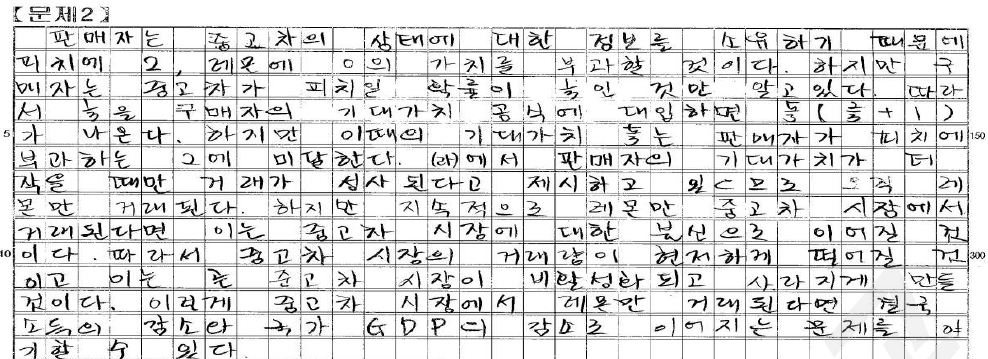 【문제2】
판매자는 중고차의 상태에 대한 정보를 소유하기 때문에
피치에 2, 레몬에 0의 가치를 부과할 것이다. 하지만 구
매자는 중고차가 피치일 확률이 인 것만 알고있다. 따라
서 을 구매자의 기대가치 공식에 대입하면
5 가 나온다. 하지만 이때의 기대가치 는 판매자가 피치에 150
부과하는 2에 미달한다. (라)에서 판매자의 기대가치가 더
작을 때만 거래가 성사된다고 제시하고 있으므로 오직 레
몬만 거래된다. 하지만 지속적으로 레몬만 중고차 시장에서
거래된다면 이는 중고차 시장에 대한 불신으로 이어질 것
10 이다. 따라서 중고차 시장의 거래량이 현저하게 떨어질 것 300
이고 이는 곧 중고차 시장이 비활성화되고 사라지게 만들
것이다. 이렇게 중고차 시장에서 레몬만 거래된다면 결국
소득의 감소와 국가 GDP의 감소로 이어지는 문제를 야
기할 수 있다.